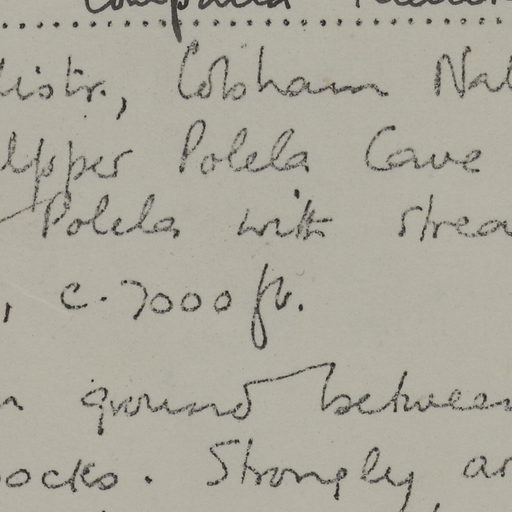 distr., Cobham Nat
Upper Polela Cave
Polela with strea
, c. 7000 ft.
n ground between
rocks. Strongly ar